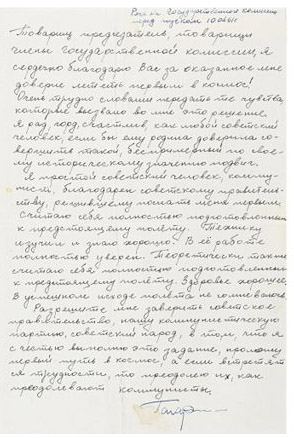 Речь на Государственной комиссии
перед пуском 10 04 61г
Товарищ председатель, товарищи
члены Государственной комиссии, я
сердечно благодарю Вас за оказанное мне
доверие лететь первым в космос!
Очень трудно словами передать те чувства,
которые вызвало во мне это решение.
Я рад, горд, счастлив, как любой советский
человек, если бы ему родина доверила со-
вершить такой, беспримерный по свое-
му историческому значению подвиг.
Я простой советский человек, комму-
нист, благодарен советскому правитель-
ству, решившему послать меня первым
Считаю себя полностью подготовленным
к предстоящему полёту. Технику
изучил и знаю хорошо. В её работе
полностью уверен. Теоретически также
считаю себя полностью подготовленным
к предстоящему полёту. Здоровье хорошее.
В успешном исходе полёта не сомневаюсь.
Разрешите мне заверить советское
правительство, нашу коммунистическую
партию, советский народ, в том, что я
с честью выполню это задание, проложу
первый путь в космос, а если встретят
ся трудности, то преодолею их, как
преодолевают коммунисты.